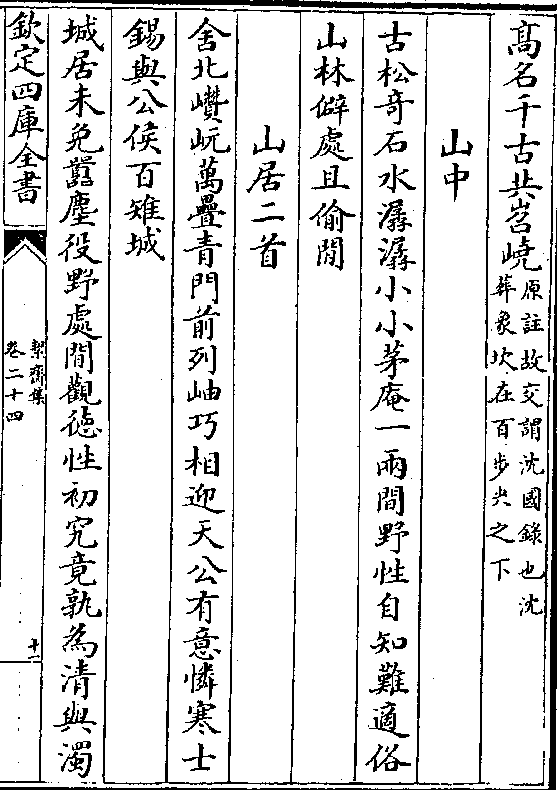 髙名千古共岧嶢原註故交謂沈國錄也沈
葬象坎在百步尖之下
山中
古松奇石水潺潺小小茅庵一兩間野性自知難適俗
山林僻處且偷閒
山居二首
舍北巑岏萬疊青門前列岫巧相迎天公有意憐寒士
錫與公侯百雉城
城居未免囂塵役野處閒觀徳性初究竟孰為清與濁
欽定四庫全書
絜齋集
卷二十四
十一